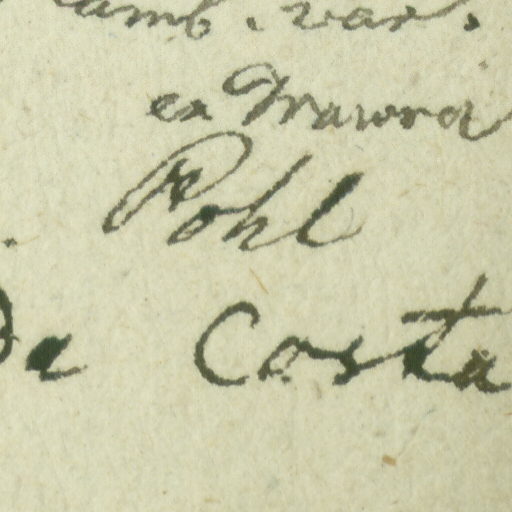 Camb. var.
ex Wawra
Pohl
Da Costa